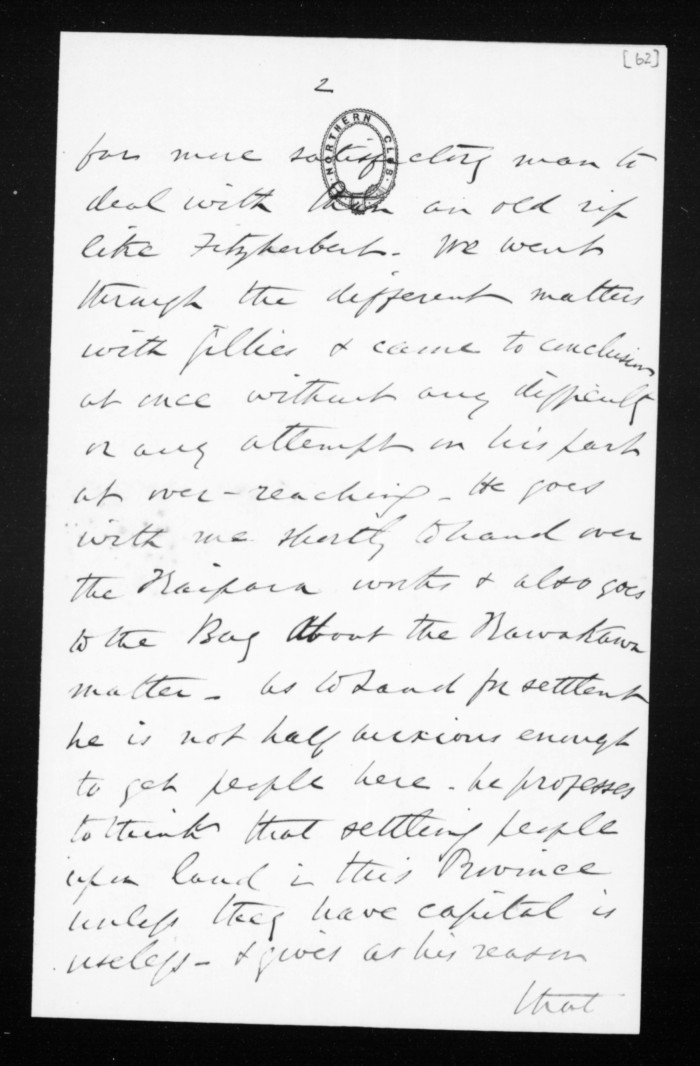 [62]
2
NORTHERN CLUB
far more satisfactory man to
deal with than an old rip
like Fitzherbert. We went
through the different matters
with Gillies & came to conclusions
at once without any difficulty
or any attempt on his part
at over-reaching. He goes
with me shortly to hand over
the Kaipara works & also goes
to the Bay about the Kawakawa
matter. As to Land for settlent
he is not half anxious enough
to get people here. he professes
to think that settling people
upon land in this Province
unless they have capital is
useless. & gives as his reason
that